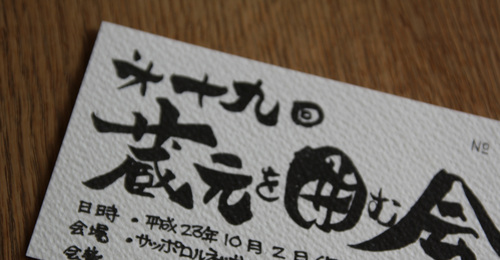 第十九回
No
蔵元を囲む会
日時・平成23年10月2日
会場・サッポロルネッサ
会費